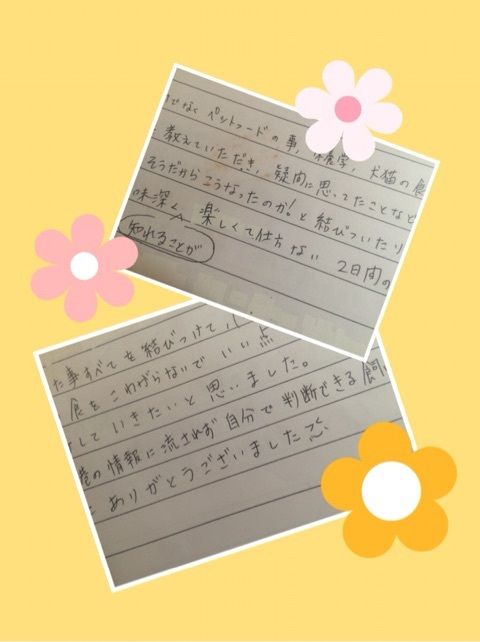 でなく ペットフードの事、 学、犬猫の食
教えていただき、疑問に思ってたことなど
そうだからこうなったのか!と結びついたり
味深く 楽しくて仕方ない 2日間の
知れることが
た事すべてを結びつけて、
食をこわがらないで いい点
していきたいと思いました。
の情報に流されず自分で判断できる飼
ありがとうございました